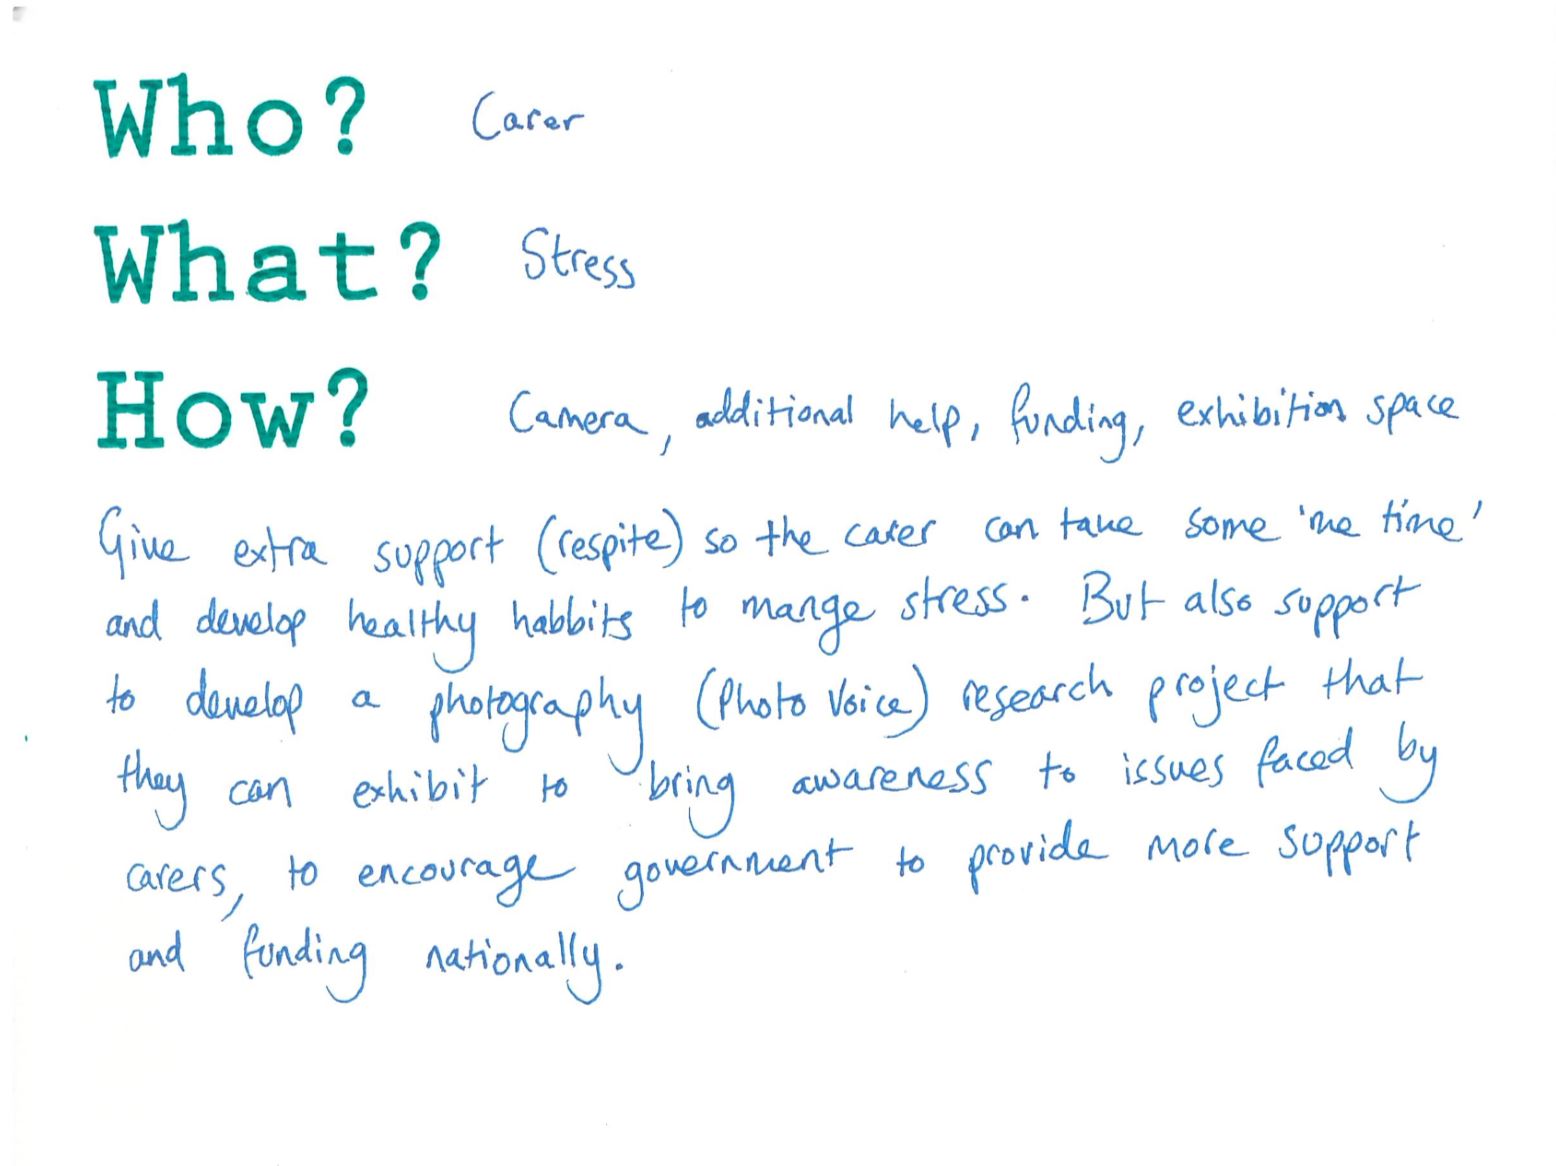 Who? Carer
What? Stress
How? Camera, additional help, funding, exhibition space
Give extra support (respite) so the carer can take some 'me time'
and develop healthy habbits to mange stress. But also support
to develop a photography (Photo Voice) research project that
they can exhibit to bring awareness to issues faced by
carers, to encourage government to provide more support
and funding nationally.